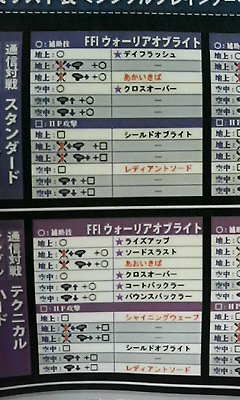 通信対戦 スタンダード
○:補助技 FFI ウォーリアオブライト
地上:○ ★デイフラッシュ
地上: +○ ー
地上: +○ あかいきば
空中:○ ★クロスオーバー
空中: +○ ー
空中: +○ ー
□:HP攻撃
地上:□ シールドオブライト
地上: +□ ー
地上: +□ ー
空中:□ レディアントソード
空中: +□ ー
空中: +□ ー
通信対戦 テクニカル
○:補助技 FFI ウォーリアオブライト
地上:○ ★ライズアップ
地上: +○ ★ソードスラスト
地上: +○ あおいきば
空中:○ ★クロスオーバー
空中: +○ ★コートバックラー
空中: +○ ★バウンスバックラー
□:HP攻撃
地上:□ シャイニングウェーブ
地上: +□ ー
地上: +□ ー
空中:□ シールドオブライト
空中: +□ ー
空中: +□ レディアントソード